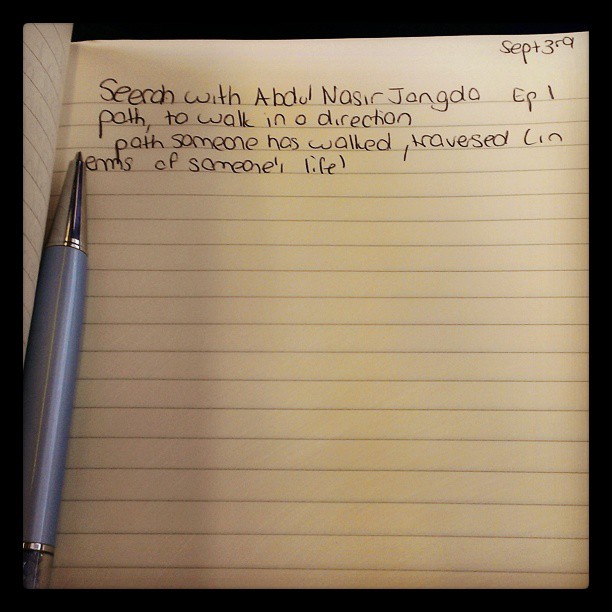 Sept 3rd
Seerah with Abdul Nasir Jangda Ep 1
path, to walk in a direction
path someone has walked, traversed (in
terms of someone's life)